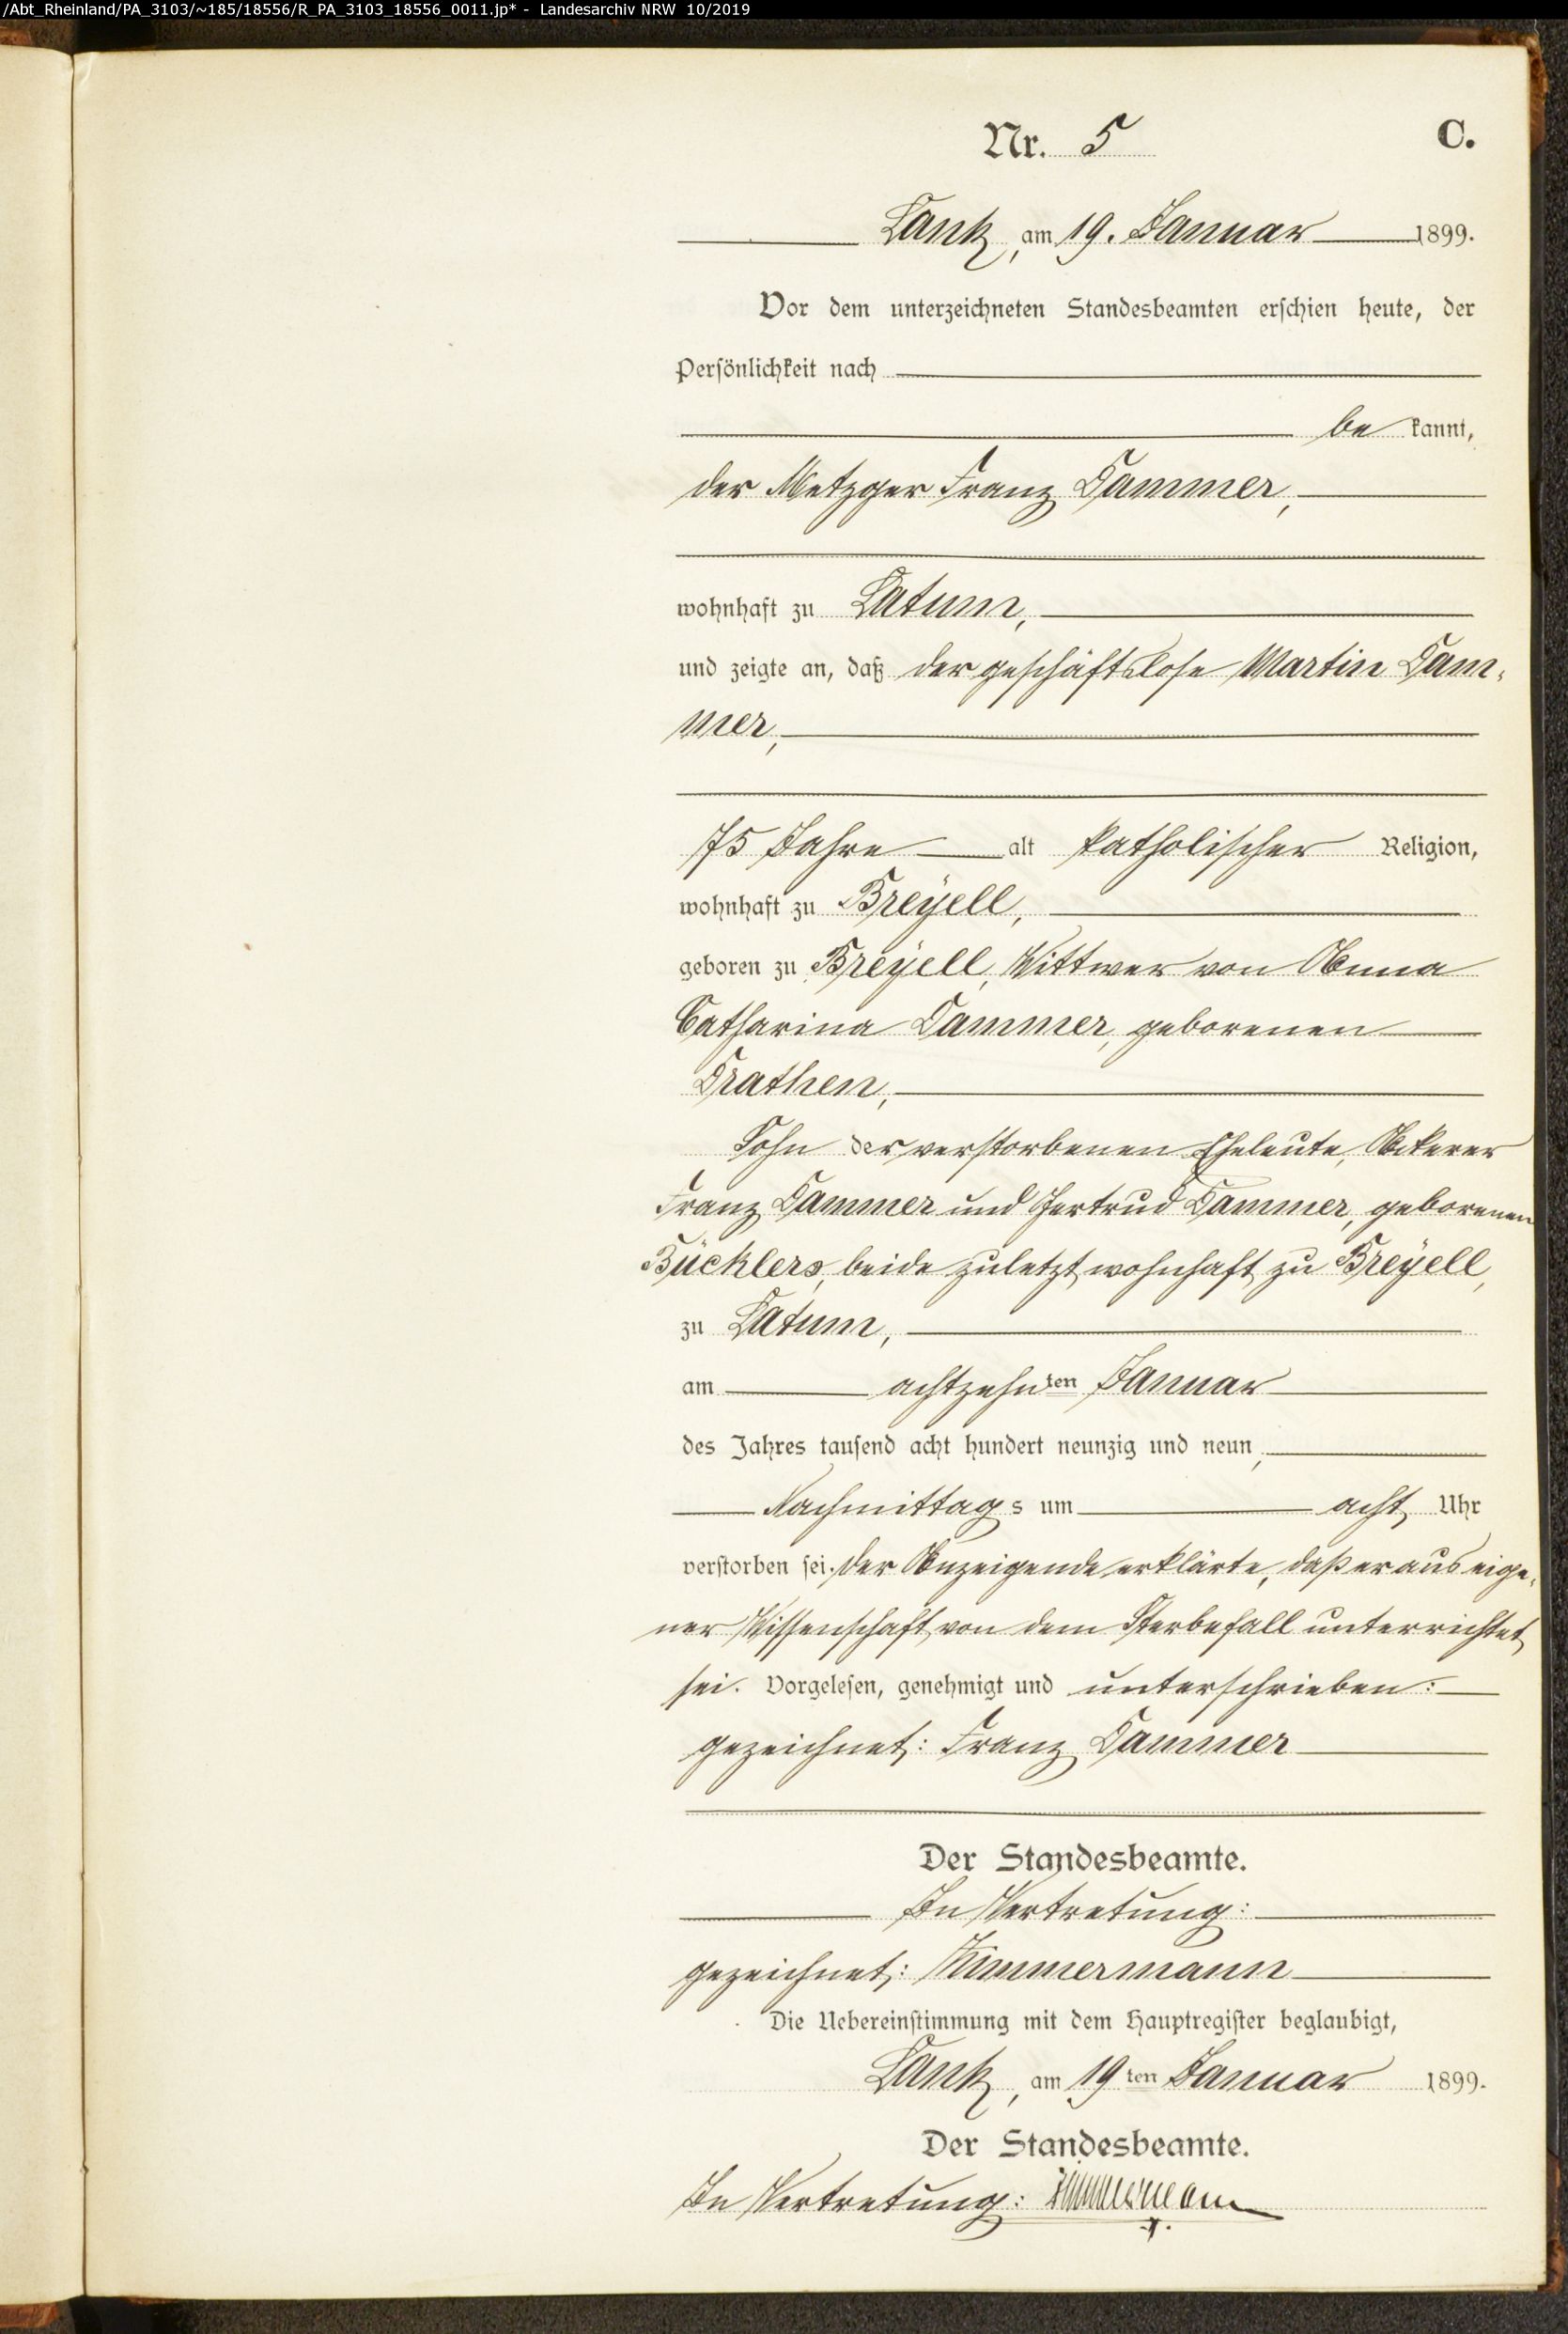 /Abt_Rheinland/PA_3103/~185/18556/R_PA_3103_18556_0011.jp* - Landesarchiv NRW 10/2019
Nr. 5 C.
Lank, am 19. Januar 1899.
Vor dem unterzeichneten Standesbeamten erschien heute, der
Persönlichkeit nach
be kannt,
der Metzger Franz Dammer,
wohnhaft zu Latum,
und zeigte an, daß der geschäftslose Martin Dam-
mer,
75 Jahre alt katholischer Religion,
wohnhaft zu Breyell,
geboren zu Breyell, Wittwer von Anna
Catharina Dammer, geborenen
Drathen,
Sohn der verstorbenen Eheleute, Ackerer
Franz Dammer und Gertrud Dammer, geborenen
Bücklers, beide zuletzt wohnhaft zu Breyell,
zu Latum,
am achtzehnten Januar
des Jahres tausend acht hundert neunzig und neun,
Nachmittags um acht Uhr
verstorben sei. Der Anzeigende erklärte, daß er aus eige-
ner Wissenschaft von dem Sterbefall unterrichtet
sei. Vorgelesen, genehmigt und unterschrieben:
gezeichnet: Franz Dammer
Der Standesbeamte.
In Vertretung:
gezeichnet: Zimmermann
Die Uebereinstimmung mit dem Hauptregister beglaubigt,
Lank, am 19ten Januar 1899.
Der Standesbeamte.
In Vertretung: Zimmermann